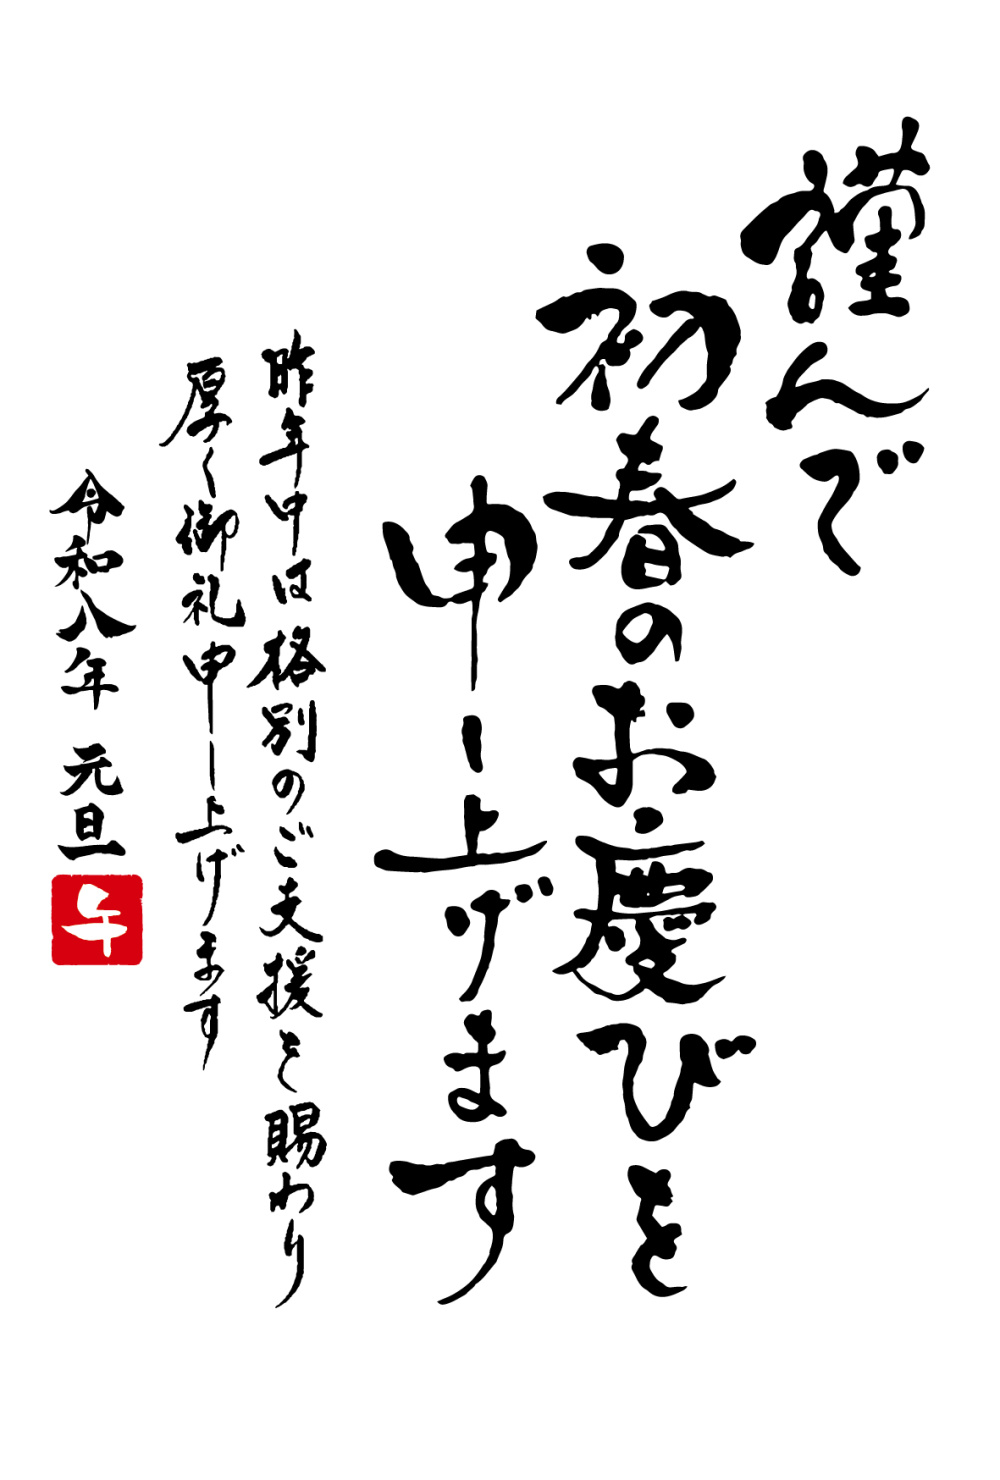 謹んで
初春のお慶びを
申し上げます
昨年中は格別のご支援を賜わり
厚く御礼申し上げます
令和八年 元旦
午